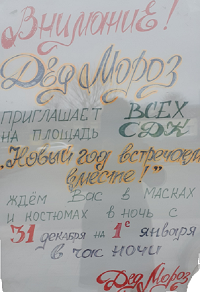 Внимание!
Дед Мороз
ПРИГЛАШАЕТ ВСЕХ
НА ПЛОЩАДЬ СДК
„Новый год встречаем
вместе!"
ЖДЁМ Вас в МАСКАХ
и КОСТЮМАХ в ночь с
31 декабря на 1ᵉ января
в час ночи
Дед Мороз